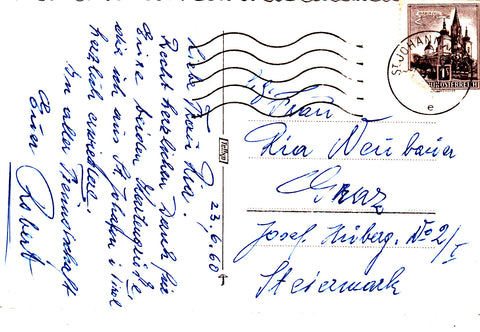 23.6.60
Liebe Frau Ria.
Recht herzlichen Dank für
Eure beiden Kartengrüße,
die ich aus St Johann i Tirol
herzlich erwidere.
In aller Freundschaft
Euer Robert
Frau
Ria Neubauer
Graz
Josef Huberg. No 2/I
Steiermark
ST. JOHANN
e